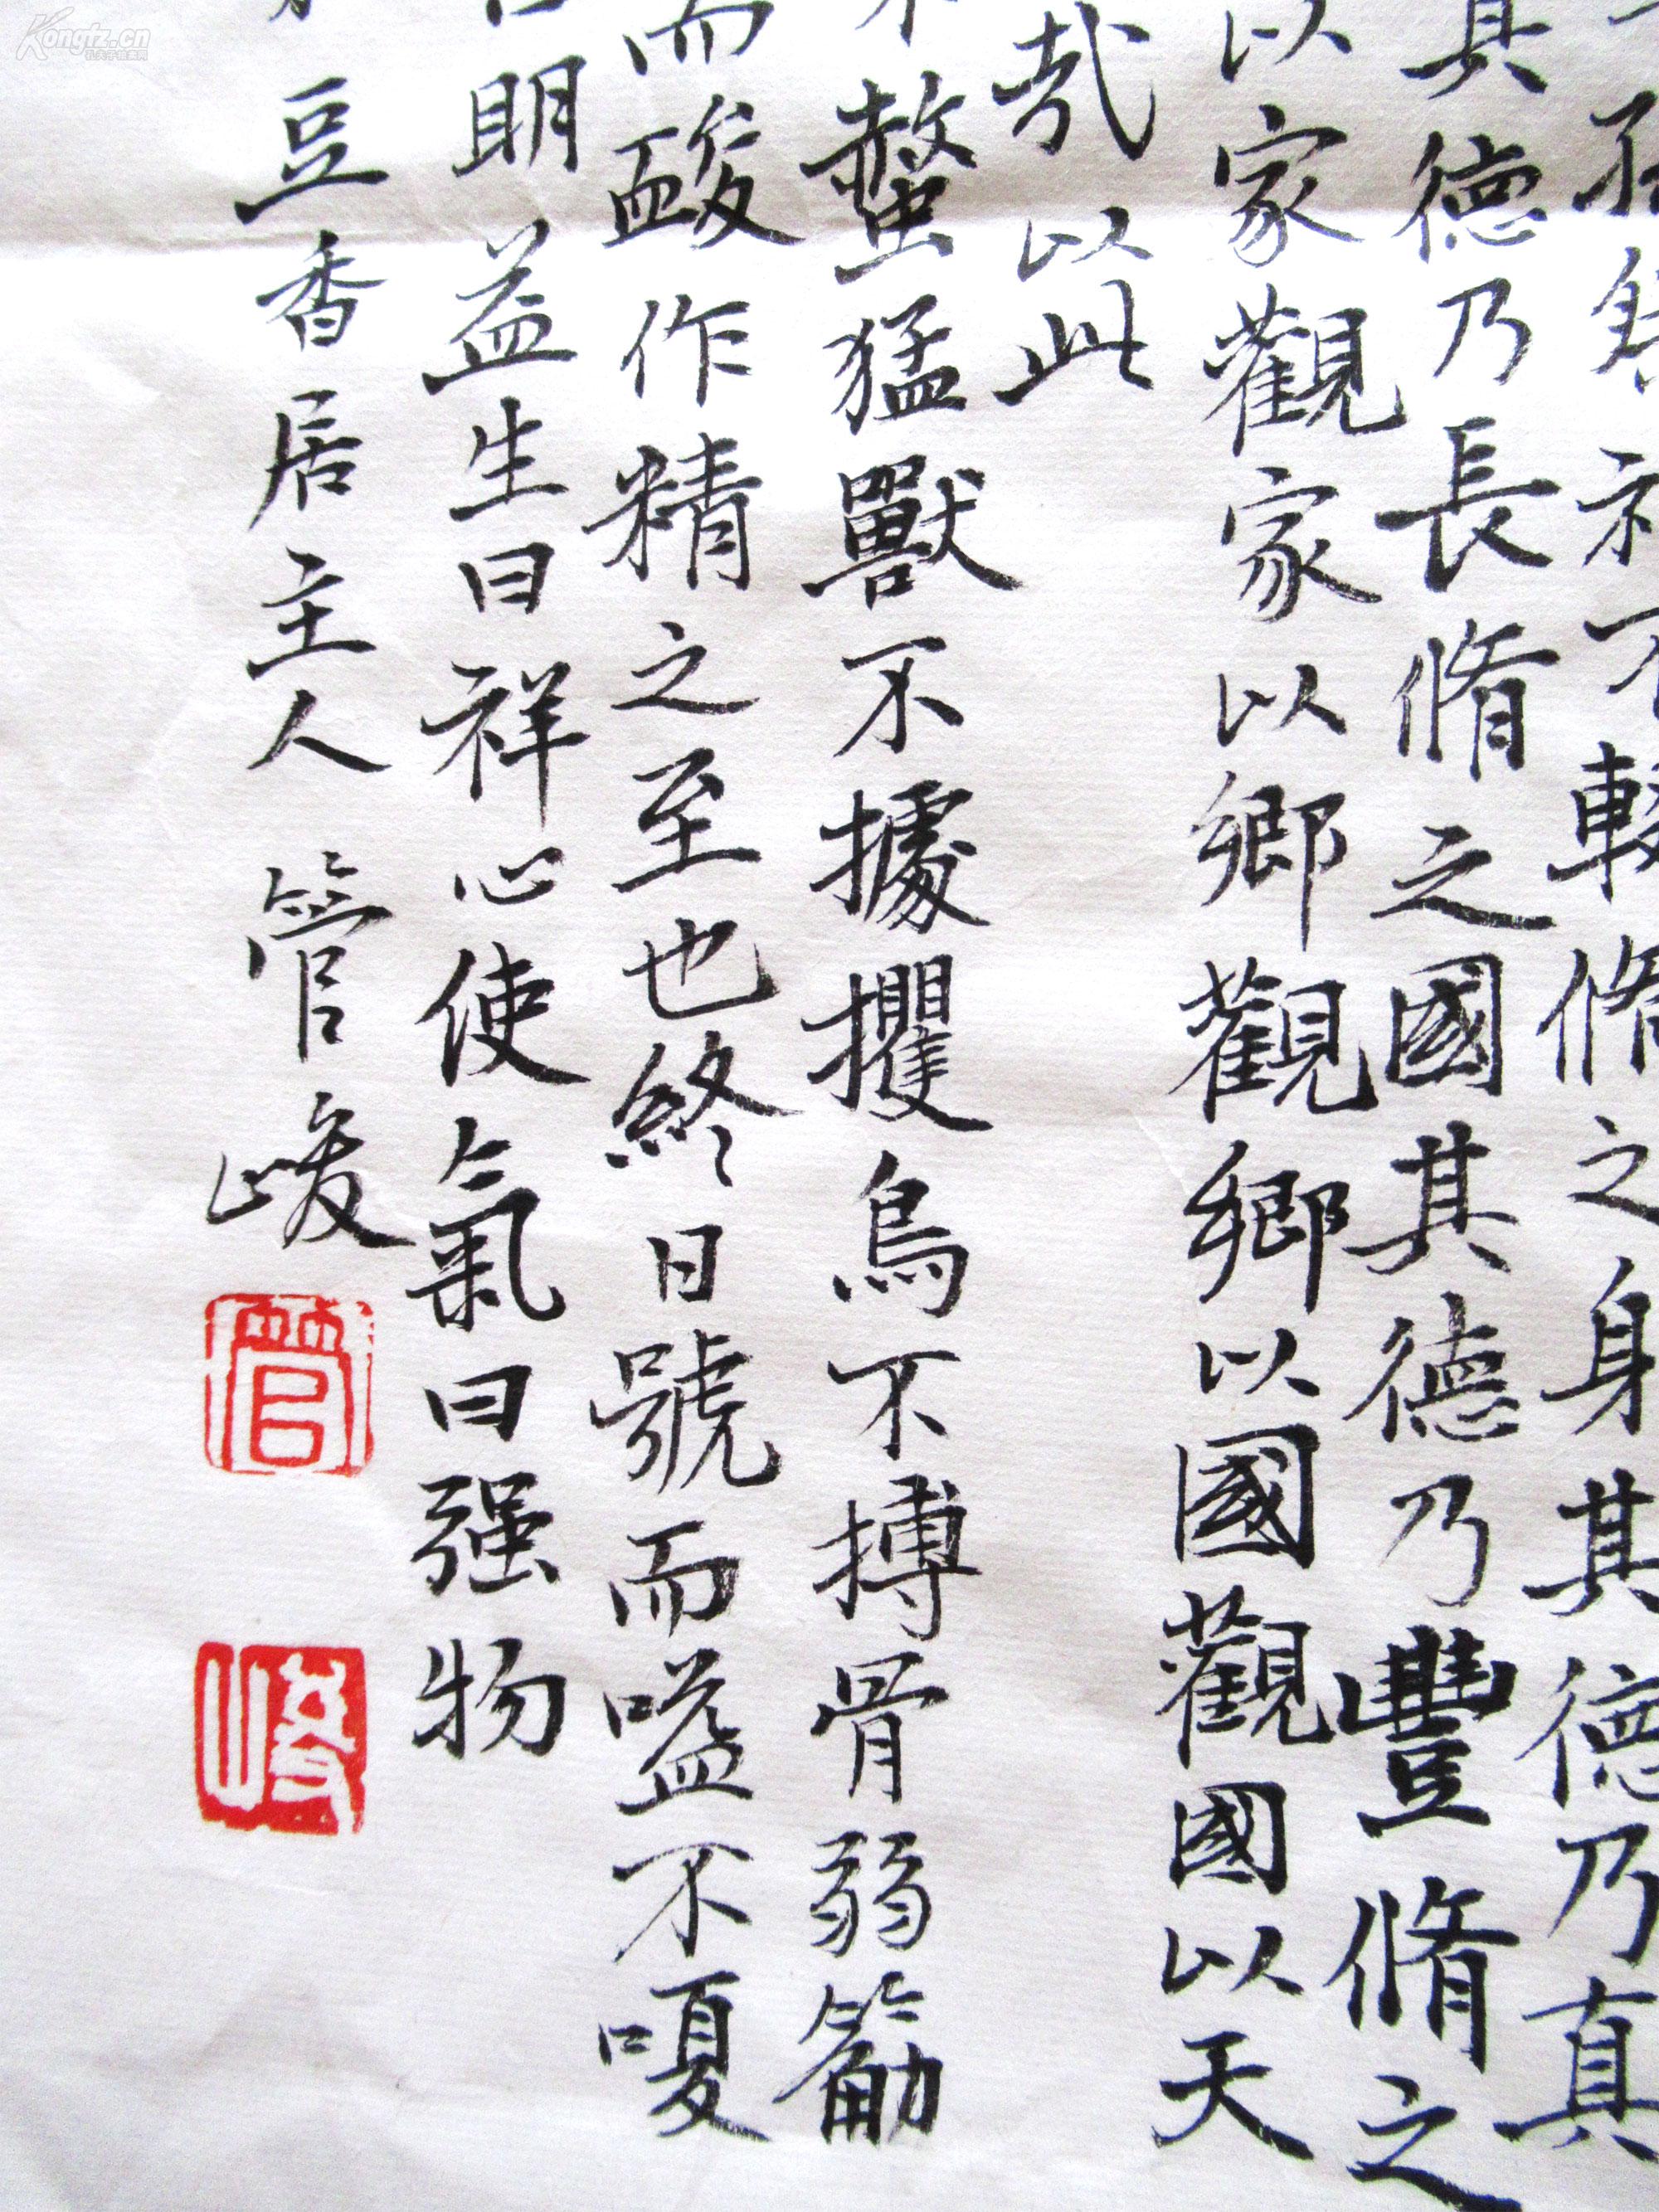 孫祭祀不輟脩之身其德乃真
其德乃長脩之國其德乃豐脩之
以家觀家以鄉觀鄉以國觀國以天
哉以此
螫猛獸不據攫鳥不搏骨弱筋
而朘作精之至也終日號而嗌不嗄
明益生曰祥心使氣曰强物
豆香居主人 管峻
管
峻
Kongtz.cn